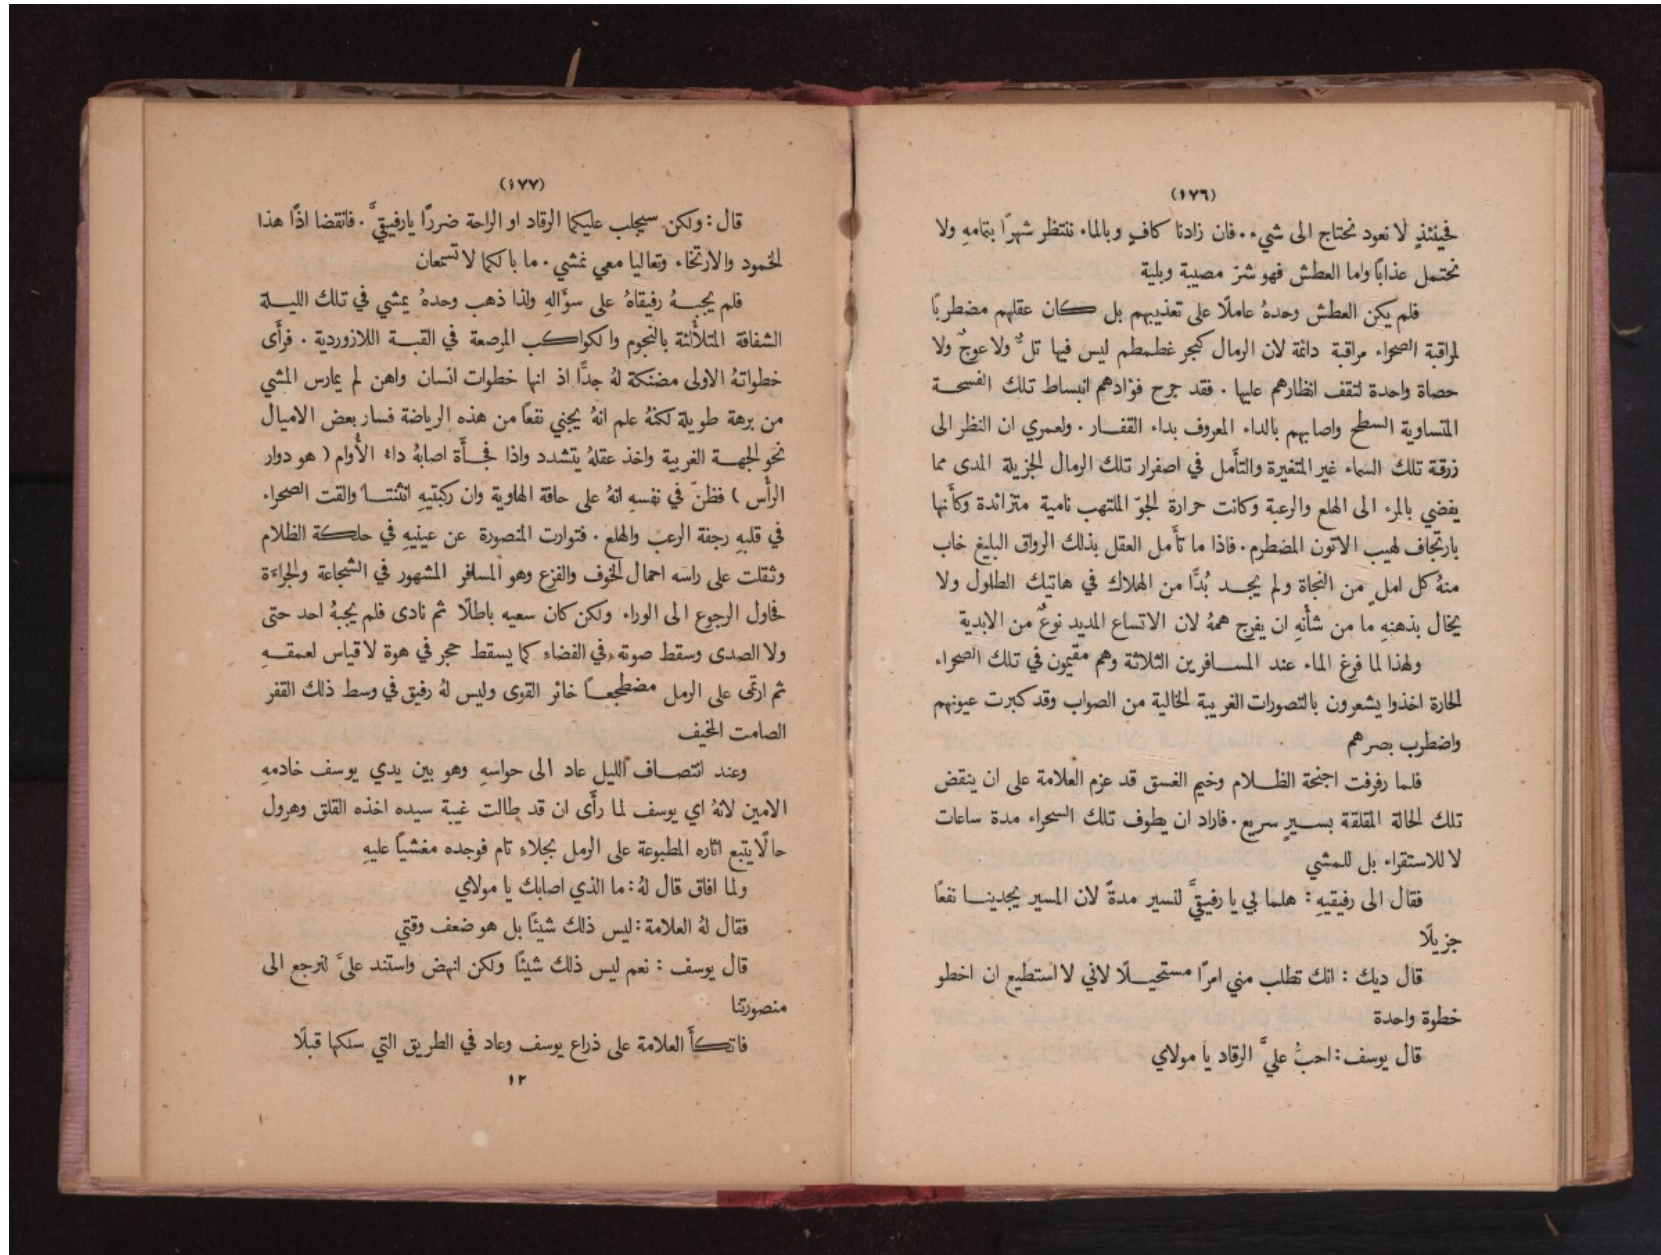 (١٧٦)
فحينئذٍ لا نعود نحتاج الى شيء. فان زادنا كافٍ وبالماء ننتظر شهرًا بتمامهِ ولا
نحتمل عذابًا واما العطش فهو شرّ مصيبة وبلية
فلم يكن العطش وحدهُ عاملًا على تعذيبهم بل كان عقلهم مضطربًا
لمراقبة الصحراء مراقبة دائمة لان الرمال كبحر غطمطم ليس فيها تلٌّ ولا عوجٌ ولا
حصاة واحدة لتقف انظارهم عليها. فقد جرح فؤادهم انبساط تلك الفسحة
المتساوية السطح واصابهم بالداء المعروف بداء القفار. ولعمري ان النظر الى
زرقة تلك السماء غير المتغيرة والتأمل في اصفرار تلك الرمال الجزيلة المدى مما
يفضي بالمرء الى الهلع والرعبة وكانت حرارة الجوّ الملتهب نامية متزائدة وكأنها
بارتجاف لهيب الاتون المضطرم. فاذا ما تأمل العقل بذلك الرواق البليغ خاب
منهُ كل املٍ من النجاة ولم يجد بُدًّا من الهلاك في هاتيك الطلول ولا
يخال بذهنهِ ما من شأنهِ ان يفرج همهُ لان الاتساع المديد نوعٌ من الابدية
ولهذا لما فرغ الماء عند المسافرين الثلاثة وهم مقيمون في تلك الصحراء
الحارة اخذوا يشعرون بالتصورات الغريبة الخالية من الصواب وقد كبرت عيونهم
واضطرب بصرهم
فلما رفرفت اجنحة الظلام وخيم الغسق قد عزم العلامة على ان ينقض
تلك الحالة المقلقة بسيرٍ سريع. فاراد ان يطوف تلك السحراء مدة ساعات
لا للاستقراء بل للمشي
فقال الى رفيقيهِ: هلما بي يا رفيقيَّ لنسير مدةً لان المسير يجدينا نفعًا
جزيلًا
قال ديك: انك تطلب مني امرًا مستحيلًا لاني لا استطيع ان اخطو
خطوة واحدة
قال يوسف: احبُّ عليَّ الرقاد يا مولاي
(١٧٧)
قال: ولكن سيجلب عليكما الرقاد او الراحة ضررًا يارفيقيَّ. فانقضا اذًا هذا
الخمود والارتخاء وتعاليا معي نمشي. ما بالكما لا تسمعان
فلم يجبهُ رفيقاهُ على سؤالهِ ولذا ذهب وحدهُ يمشي في تلك الليلة
الشفافة المتلألئة بالنجوم والكواكب المرصعة في القبة اللازوردية. فرأى
خطواتهُ الاولى مضنكة لهُ جدًّا اذ انها خطوات انسان واهن لم يمارس المشي
من برهة طويلة لكنهُ علم انهُ يجني نفعًا من هذه الرياضة فسار بعض الاميال
نحو الجهة الغربية واخذ عقلهُ يتشدد واذا فجأة اصابهُ داء الأُوام (هو دوار
الرأس) فظنّ في نفسهِ انهُ على حافة الهاوية وان ركبتيهِ انثنتا والقت الصحراء
في قلبهِ رجفة الرعب والهلع. فتوارت المنصورة عن عينيهِ في حلكة الظلام
وثقلت على راسه احمال الخوف والفزع وهو المسافر المشهور في الشجاعة والجراءة
فحاول الرجوع الى الوراء ولكن كان سعيه باطلًا ثم نادى فلم يجبهُ احد حتى
ولا الصدى وسقط صوته في الفضاء كما يسقط حجر في هوة لا قياس لعمقهِ
ثم ارتمى على الرمل مضطجعاً خائر القوى وليس لهُ رفيق في وسط ذلك القفر
الصامت المخيف
وعند انتصاف الليل عاد الى حواسهِ وهو بين يدي يوسف خادمهِ
الامين لانهُ اي يوسف لما رأى ان قد طالت غيبة سيده اخذه القلق وهرول
حالًا يتبع اثاره المطبوعة على الرمل بجلاءٍ تام فوجده مغشيًا عليهِ
ولما افاق قال لهُ: ما الذي اصابك يا مولاي
فقال لهُ العلامة: ليس ذلك شيئًا بل هو ضعف وقتي
قال يوسف: نعم ليس ذلك شيئًا ولكن انهض واستند عليَّ لنرجع الى
منصورتنا
فاتكأَ العلامة على ذراع يوسف وعاد في الطريق التي سلكها قبلًا
١٢